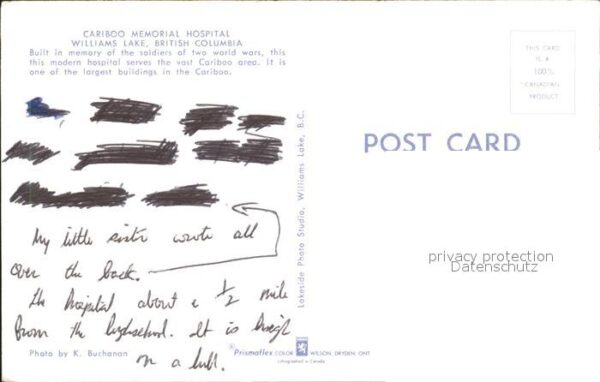 CARIBOO MEMORIAL HOSPITAL
WILLIAMS LAKE, BRITISH COLUMBIA
Built in memory of the soldiers of two world wars, this
this modern hospital serves the vast Cariboo area. It is
one of the largest buildings in the Cariboo.
THIS CARD
IS A
100%
CANADIAN
PRODUCT
POST CARD
Lakeside Photo Studio, Williams Lake, B.C.
My little sister wrote all
over the back.
the hospital about a 1/2 mile
from the highschool. It is high
on a hill.
privacy protection
Datenschutz
Photo by K. Buchanan
Prismaflex COLOR WILSON, DRYDEN, ONT
Lithographed in Canada